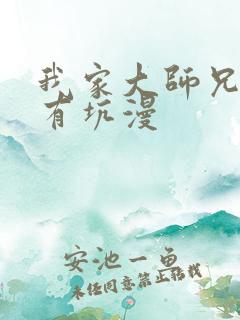 我家大师兄
有坑漫
安池一鱼
未经同意禁止转载